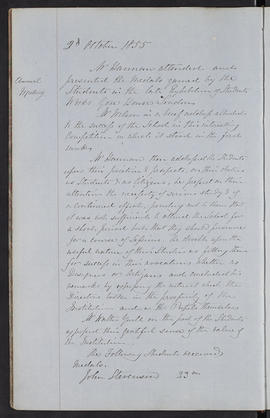 9th October 1855
Annual
Meeting
Mr Hannan attended and
presented the Medals gained by the
Students in the late Exhibition of Students
Works Gore House London
Mr Wilson in a brief address alluded
to the success of the School in this interesting
Competition in which it stood in the first
number
Mr Hannan then addressed the Students
upon their position & prospects, on their duties
as Students & as Citizens, he pressed on their
attention the necessity of serious study & of
a continued effort, pointing out to them that
it was not sufficient to attend the School for
a short period but they should persevere
for a course of Sessions. He dwelt upon the
useful nature of their Studies as fitting them
for success in their avocations whether as
Designers or Artizans and concluded his
remarks by expressing the interest which the
Directors takes in the prosperity of the
Institution and in the Pupils themselves
Mr Walter on the part of the Students
expressed their grateful sense of the value of
the Institution.
The Following Students received
Medals.
John Stevenson 23